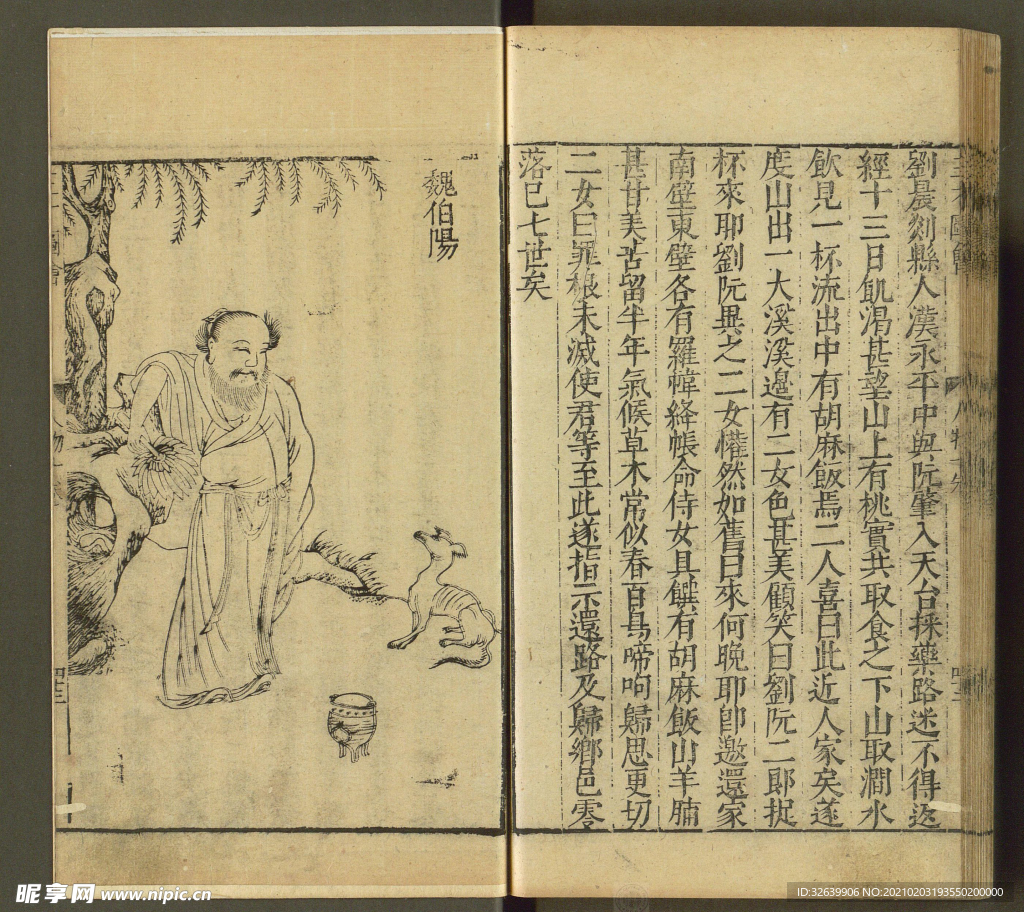 劉晨剡縣人漢永平中與阮肇入天台採藥路迷不得返
經十三日飢渴甚望山上有桃實共取食之下山取澗水
飲見一杯流出中有胡麻飯焉二人喜曰此近人家矣遂
度山出一大溪溪邊有二女色甚美顧笑曰劉阮二郎捉
杯來耶劉阮異之二女懽然如舊曰來何晚耶即邀還家
南壁東壁各有羅幃絳帳命侍女具饌有胡麻飯山羊脯
甚甘美苦留半年氣候草木常似春百鳥啼呴歸思更切
二女曰罪根未滅使君等至此遂指示還路及歸鄉邑零
落已七世矣
魏伯陽
昵享网 www.nipic.cn
ID:32639906 NO:20210203193550200000